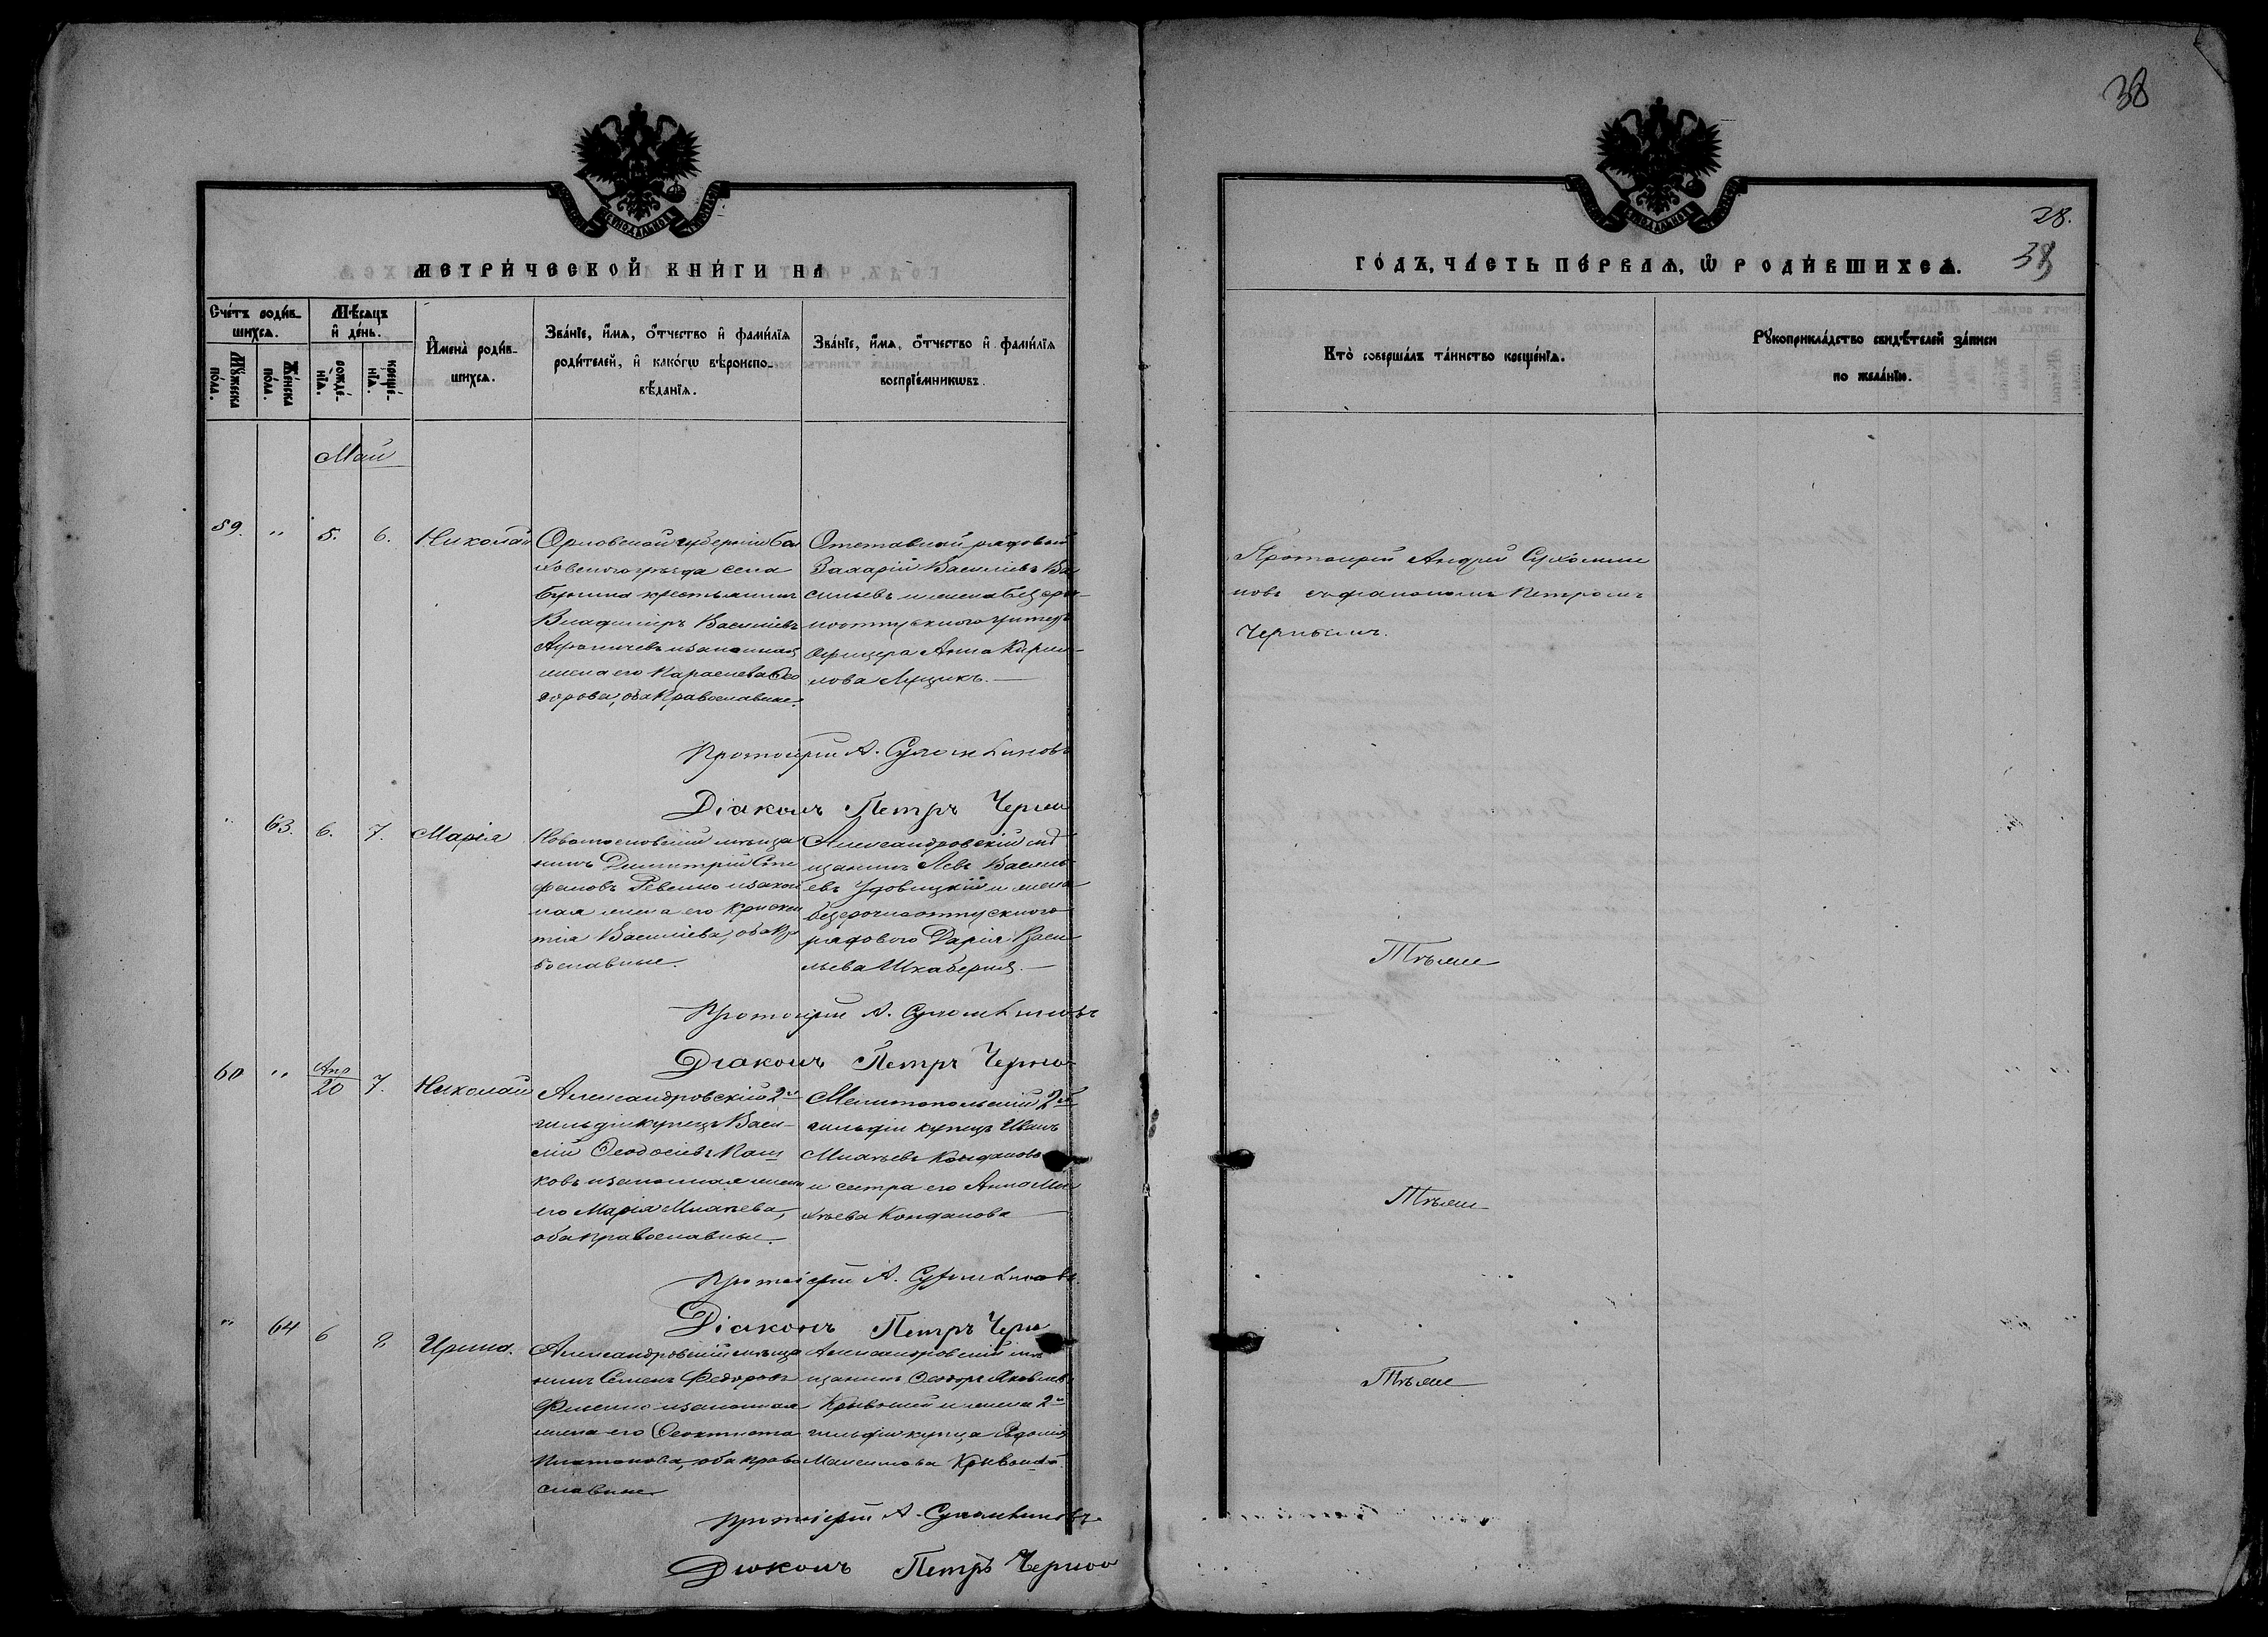 38
МЕТРИ́ЧЕСКОЙ КНИ́ГИ НА
Сче́тъ роди́в-
шихсѧ.
Мꙋ́жеска
по́ла.
Же́нска
по́ла.
Мѣ́сѧцъ
и҆ де́нь.
рожде́-
нїѧ.
креще́-
нїѧ.
И҆мена̀ роди́в-
шихсѧ.
Зва́нїе, и҆́мѧ, ѻ҆́тчество и҆ фами́лїѧ
роди́телей, и҆ како́гѡ вѣроиспо-
вѣ́данїѧ.
Зва́нїе, и҆́мѧ, ѻ҆́тчество и҆ фами́лїѧ
воспрїе́мникѡвъ.
Май
59. " 5. 6. Николай
Орловской губерніи Бол
ховскаго уѣзда села
крестьянинъ
Владиміръ Васильевъ
и законная
жена его Параскева Ѳео
дорова, оба Православные.
Отставной рядовой
Захарій Васильевъ Ва
сильевъ и жена безсроч-
ноотпускного унтеръ
офицера Анна Кирил-
лова Лущикъ.
Протоіерей А. Сухомлиновъ
Діаконъ Петръ Черны
" 63. 6. 7. Марія
Новомосковскій мѣща
нинъ Димитрій Сте
фановъ Ревенко и закон
ная жена его
Васильева, оба Пра
вославные.
Александровскій мѣ
щанинъ Левъ Василь-
евъ Удовицкій и жена
безсрочноотпускного
рядового Дарія Васи
льева
Протоіерей А. Сухомлиновъ
Діаконъ Петръ Черно
60 " Апр 20 7. Николай
Александровскій 2й
гильдіи купецъ Васи-
лій Ѳеодосіевъ
ковъ и законная жена
его Марія Михѣева,
оба православные.
Мелитопольскій 2й
гильдіи купецъ Иванъ
Михѣевъ Кондаковъ
и сестра его Анна Ми
хѣева Кондакова
Протоіерей А. Сухомлиновъ.
Діаконъ Петръ Черн
" 64 6 8 Ирина.
Александровскій мѣща
нинъ Семенъ Федоровъ
и законная
жена его Ѳеоктиста
Платонова, оба право
славные
Александровскій мѣ
щанинъ Ѳеодоръ Яковлевъ
и жена 2й
гильдіи купца Евдокія
Максимова
Протоіерей А. Сухомлиновъ.
Діаконъ Петръ Черноо
28.
38
ГО́ДЪ, ЧА́СТЬ ПЕ́РВАѦ, Ѡ҆ РОДИ́ВШИХСѦ.
Кто̀ соверша́лъ та́инство креще́нїѧ.
Рꙋкоприкла́дство свидѣ́телей за́писи
по жела́нїю.
Протоіерей Андрей Сухомли
новъ съ діакономъ Петромъ
Чернымъ.
Тѣже
Тѣже
Тѣже